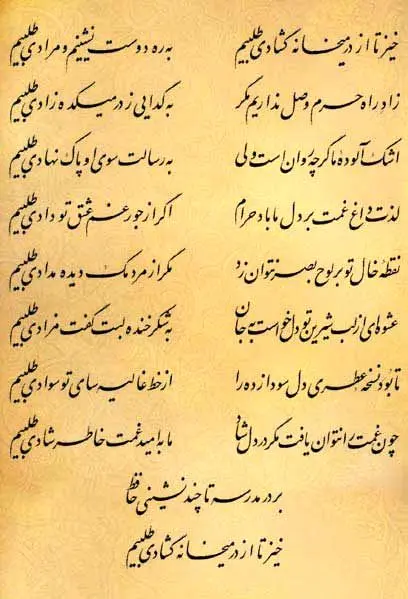 خیز تا از در میخانه گشادی طلبیم
به ره دوست نشینیم و مرادی طلبیم
زاد راه حرم وصل نداریم مگر
به گدایی ز در میکده زادی طلبیم
اشک آلوده ما گرچه روان است ولی
به رسالت سوی او پاک نهادی طلبیم
لذت داغ غمت بر دل ما باد حرام
اگر از جور غم عشق تو دادی طلبیم
نقطه خال تو بر لوح بصر نتوان زد
مگر از مردمک دیده مدادی طلبیم
عشوه‌ای از لب شیرین تو دل خواست به جان
به شکر خنده لبت گفت مرادی طلبیم
تا بود نسخه عطری دل سودا زده را
از خط غالیه سای تو سوادی طلبیم
چون غمت را نتوان یافت مگر در دل شاد
ما به امید غمت خاطر شادی طلبیم
بر در مدرسه تا چند نشینی حافظ
خیز تا از در میخانه گشادی طلبیم